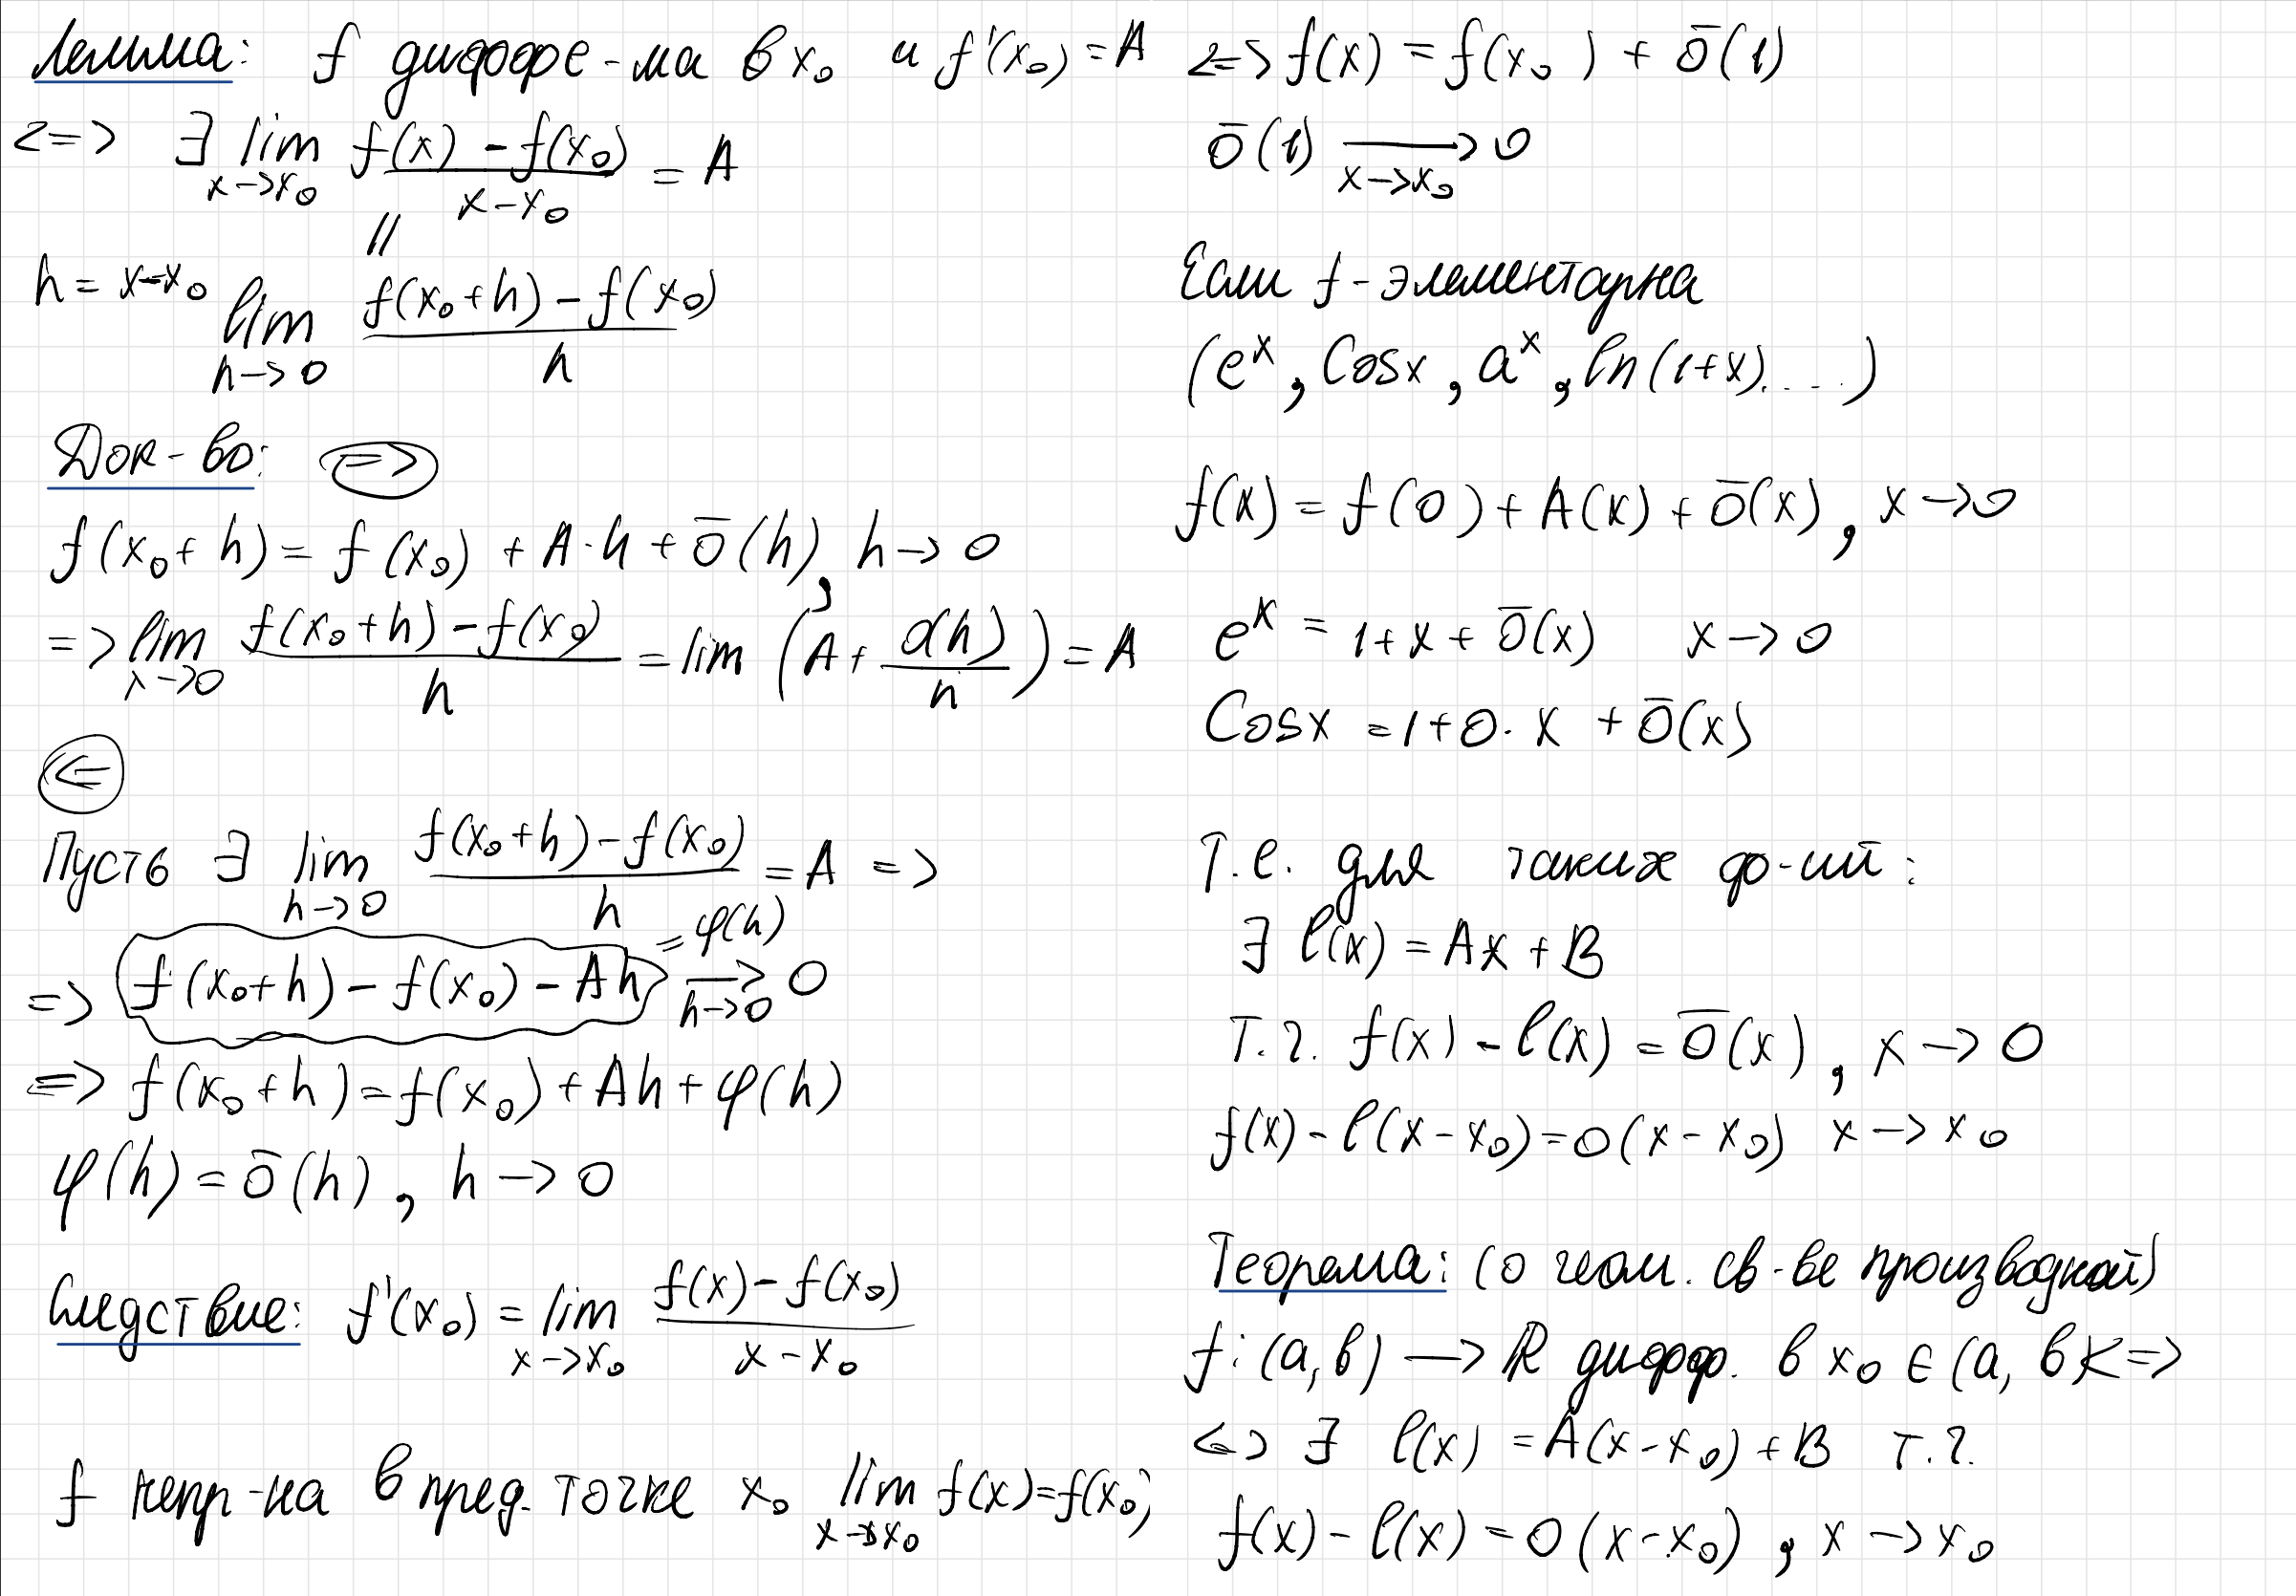 Лемма: f дифффе-ма в x₀ и f'(x₀) = A
<=> ∃ lim_{x->x₀} (f(x) - f(x₀))/(x - x₀) = A
||
h = x-x₀ lim_{h->0} (f(x₀+h) - f(x₀))/h
Док-во: (=>)
f(x₀+h) = f(x₀) + A·h + ō(h), h -> 0
=> lim_{h->0} (f(x₀+h) - f(x₀))/h = lim (A + o(h)/h) = A
(<=)
Пусть ∃ lim_{h->0} (f(x₀+h) - f(x₀))/h = A =>
=> f(x₀+h) - f(x₀) - Ah = φ(h) ->_{h->0} 0
=> f(x₀+h) = f(x₀) + Ah + φ(h)
φ(h) = ō(h), h -> 0
Следствие: f'(x₀) = lim_{x->x₀} (f(x) - f(x₀))/(x - x₀)
f непр-на в пред. точке x₀ lim_{x->x₀} f(x) = f(x₀)
<=> f(x) = f(x₀) + ō(1)
ō(1) ->_{x->x₀} 0
Если f - элементарна
(eˣ, Cosx, aˣ, ln(1+x)....)
f(x) = f(0) + A(x) + ō(x), x -> 0
eˣ = 1 + x + ō(x) x -> 0
Cosx = 1 + 0·x + ō(x)
Т.е. для таких ф-ий:
∃ l(x) = Ax + B
т.ч. f(x) - l(x) = ō(x), x -> 0
f(x) - l(x - x₀) = o(x - x₀) x -> x₀
Теорема: (о геом. св-ве производной)
f: (a, b) -> ℝ дифф. в x₀ ∈ (a, b) <=>
<=> ∃ l(x) = A(x - x₀) + B т.ч.
f(x) - l(x) = o(x - x₀), x -> x₀